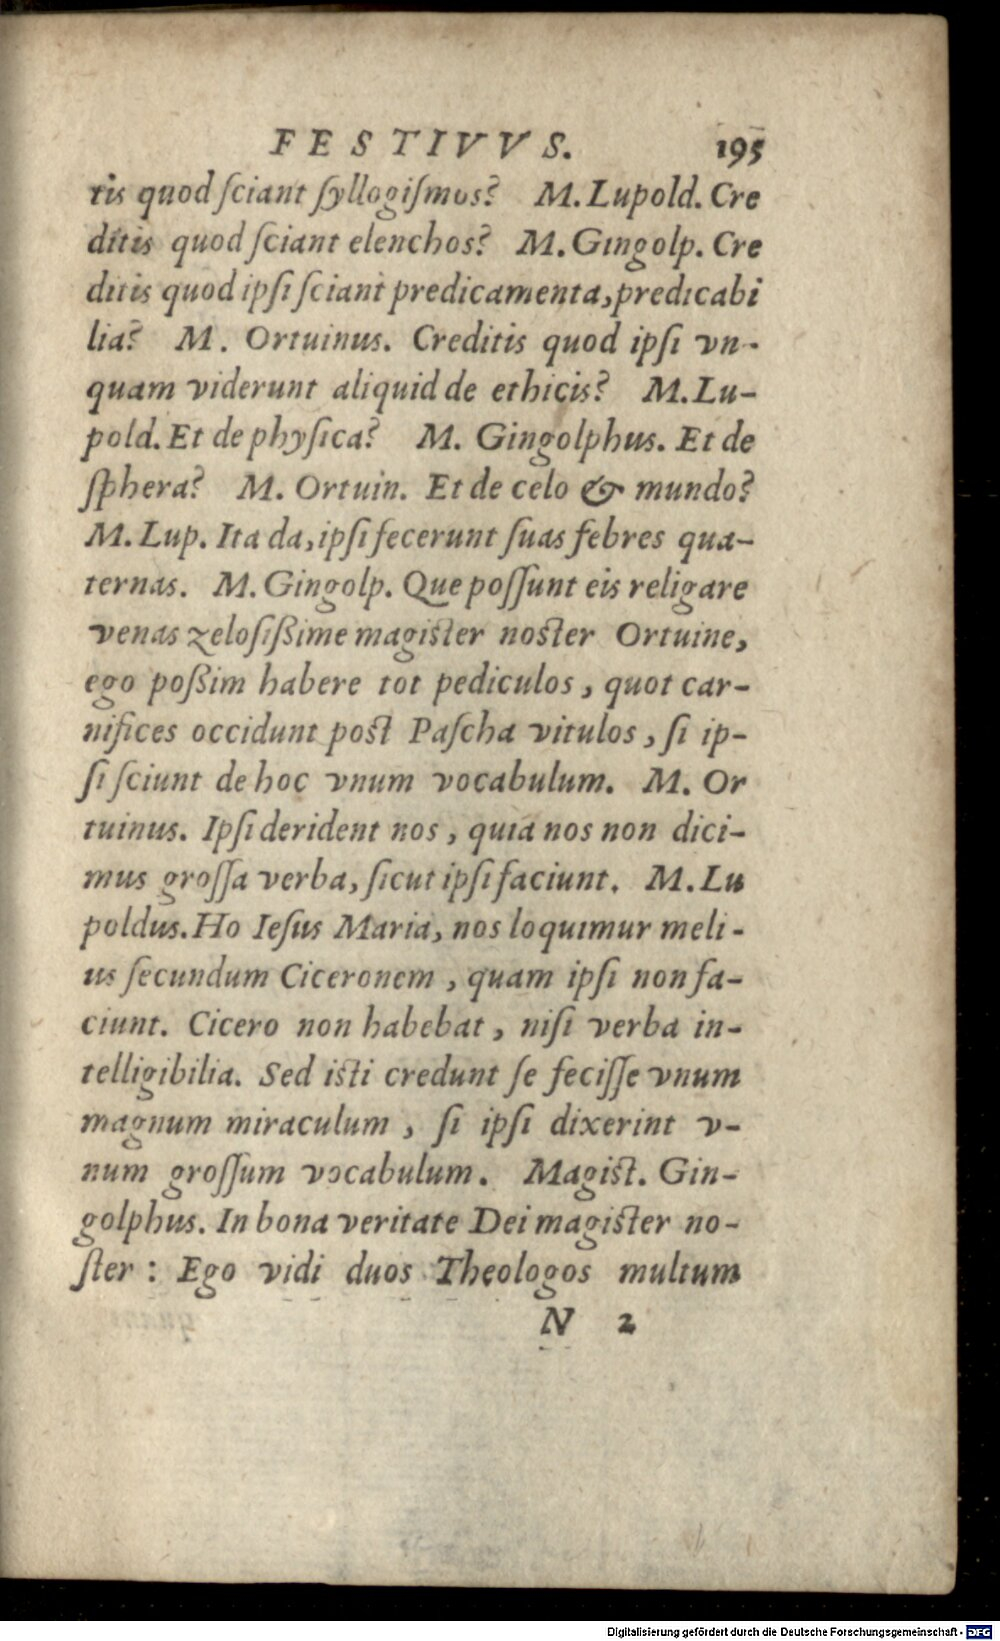 FESTIVVS. 195
tis quod ſciant ſyllogiſmos? M. Lupold. Cre
ditis quod ſciant elenchos? M. Gingolp. Cre
ditis quod ipſi ſciant predicamenta, predicabi
lia? M. Ortuinus. Creditis quod ipſi vn-
quam viderunt aliquid de ethicis? M. Lu-
pold. Et de phyſica? M. Gingolphus. Et de
ſphera? M. Ortuin. Et de celo & mundo?
M. Lup. Ita da, ipſi fecerunt ſuas febres qua-
ternas. M. Gingolp. Que poſſunt eis religare
venas zeloſißime magiſter noſter Ortuine,
ego poßim habere tot pediculos, quot car-
nifices occidunt poſt Paſcha vitulos, ſi ip-
ſi ſciunt de hoc vnum vocabulum. M. Or
tuinus. Ipſi derident nos, quia nos non dici-
mus groſſa verba, ſicut ipſi faciunt. M. Lu
poldus. Ho Ieſus Maria, nos loquimur meli-
us ſecundum Ciceronem, quam ipſi non fa-
ciunt. Cicero non habebat, niſi verba in-
telligibilia. Sed iſti credunt ſe feciſſe vnum
magnum miraculum, ſi ipſi dixerint v-
num groſſum vocabulum. Magiſt. Gin-
golphus. In bona veritate Dei magiſter no-
ſter: Ego vidi duos Theologos multum
N 2
Digitalisierung gefördert durch die Deutsche Forschungsgemeinschaft - DFG